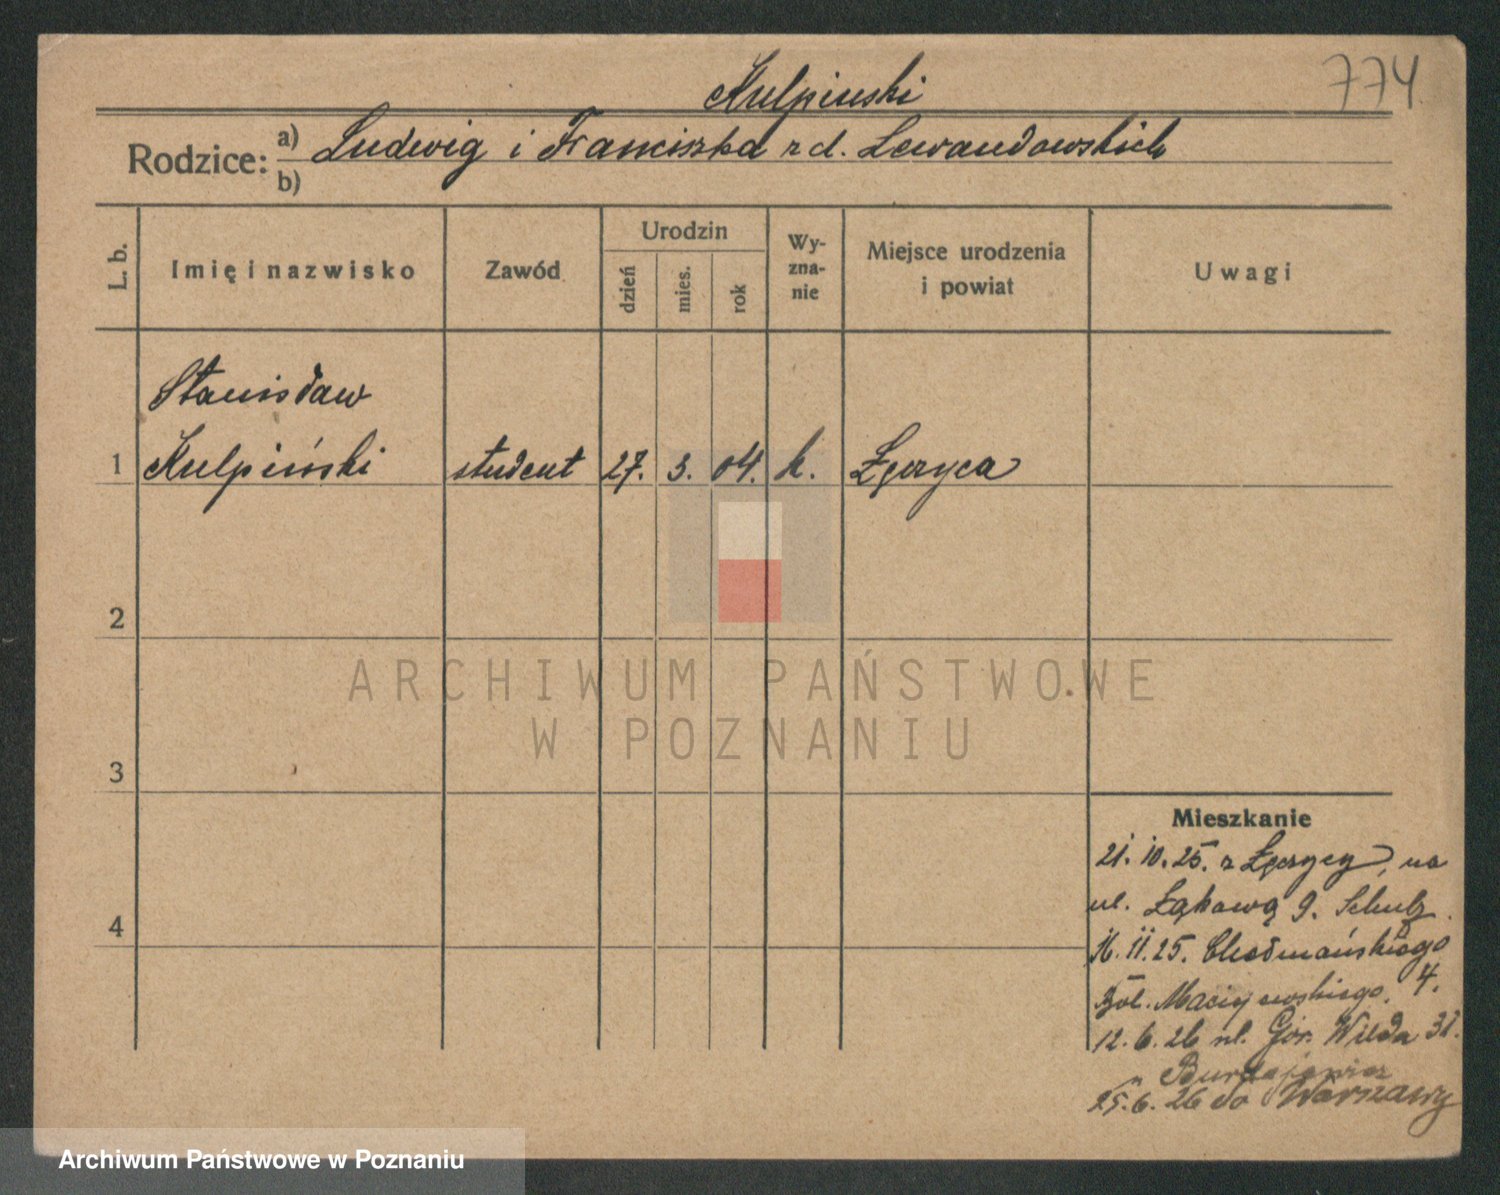 774
Kulpiński
Rodzice: a) Ludwig i Franciszka z d. Lewandowskich
b)
L. b.
Imię i nazwisko
Zawód
Urodzin
dzień
mies.
rok
Wy-
zna-
nie
Miejsce urodzenia
i powiat
Uwagi
Stanisław
1 Kulpiński student 27. 3. 04. k.
2
ARCHIWUM PAŃSTWOWE
W POZNANIU
3
Mieszkanie
21. 10. 25. z na
ul. Łąkową 9. Schulz.
4
16. 11. 25.
4.
12. 6. 26 ul. Gór. Wilda
25. 6. 26 do Warszawy
Archiwum Państwowe w Poznaniu